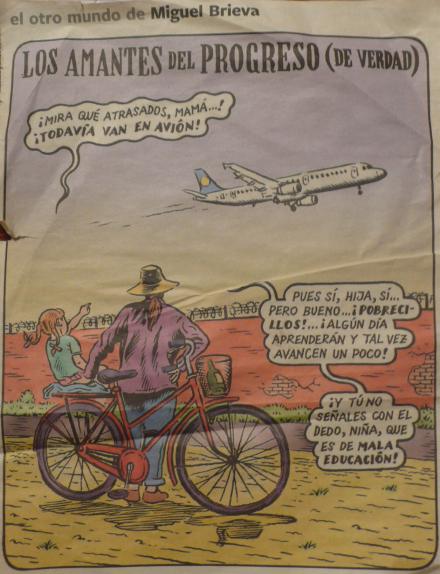 el otro mundo de Miguel Brieva
LOS AMANTES DEL PROGRESO (DE VERDAD)
¡MIRA QUÉ ATRASADOS, MAMÁ...!
¡TODAVÍA VAN EN AVIÓN!
PUES SÍ, HIJA, SÍ...
PERO BUENO...¡POBRECI-
LLOS!...¡ALGÚN DÍA
APRENDERÁN Y TAL VEZ
AVANCEN UN POCO!
¡Y TÚ NO
SEÑALES CON EL
DEDO, NIÑA, QUE
ES DE MALA
EDUCACIÓN!